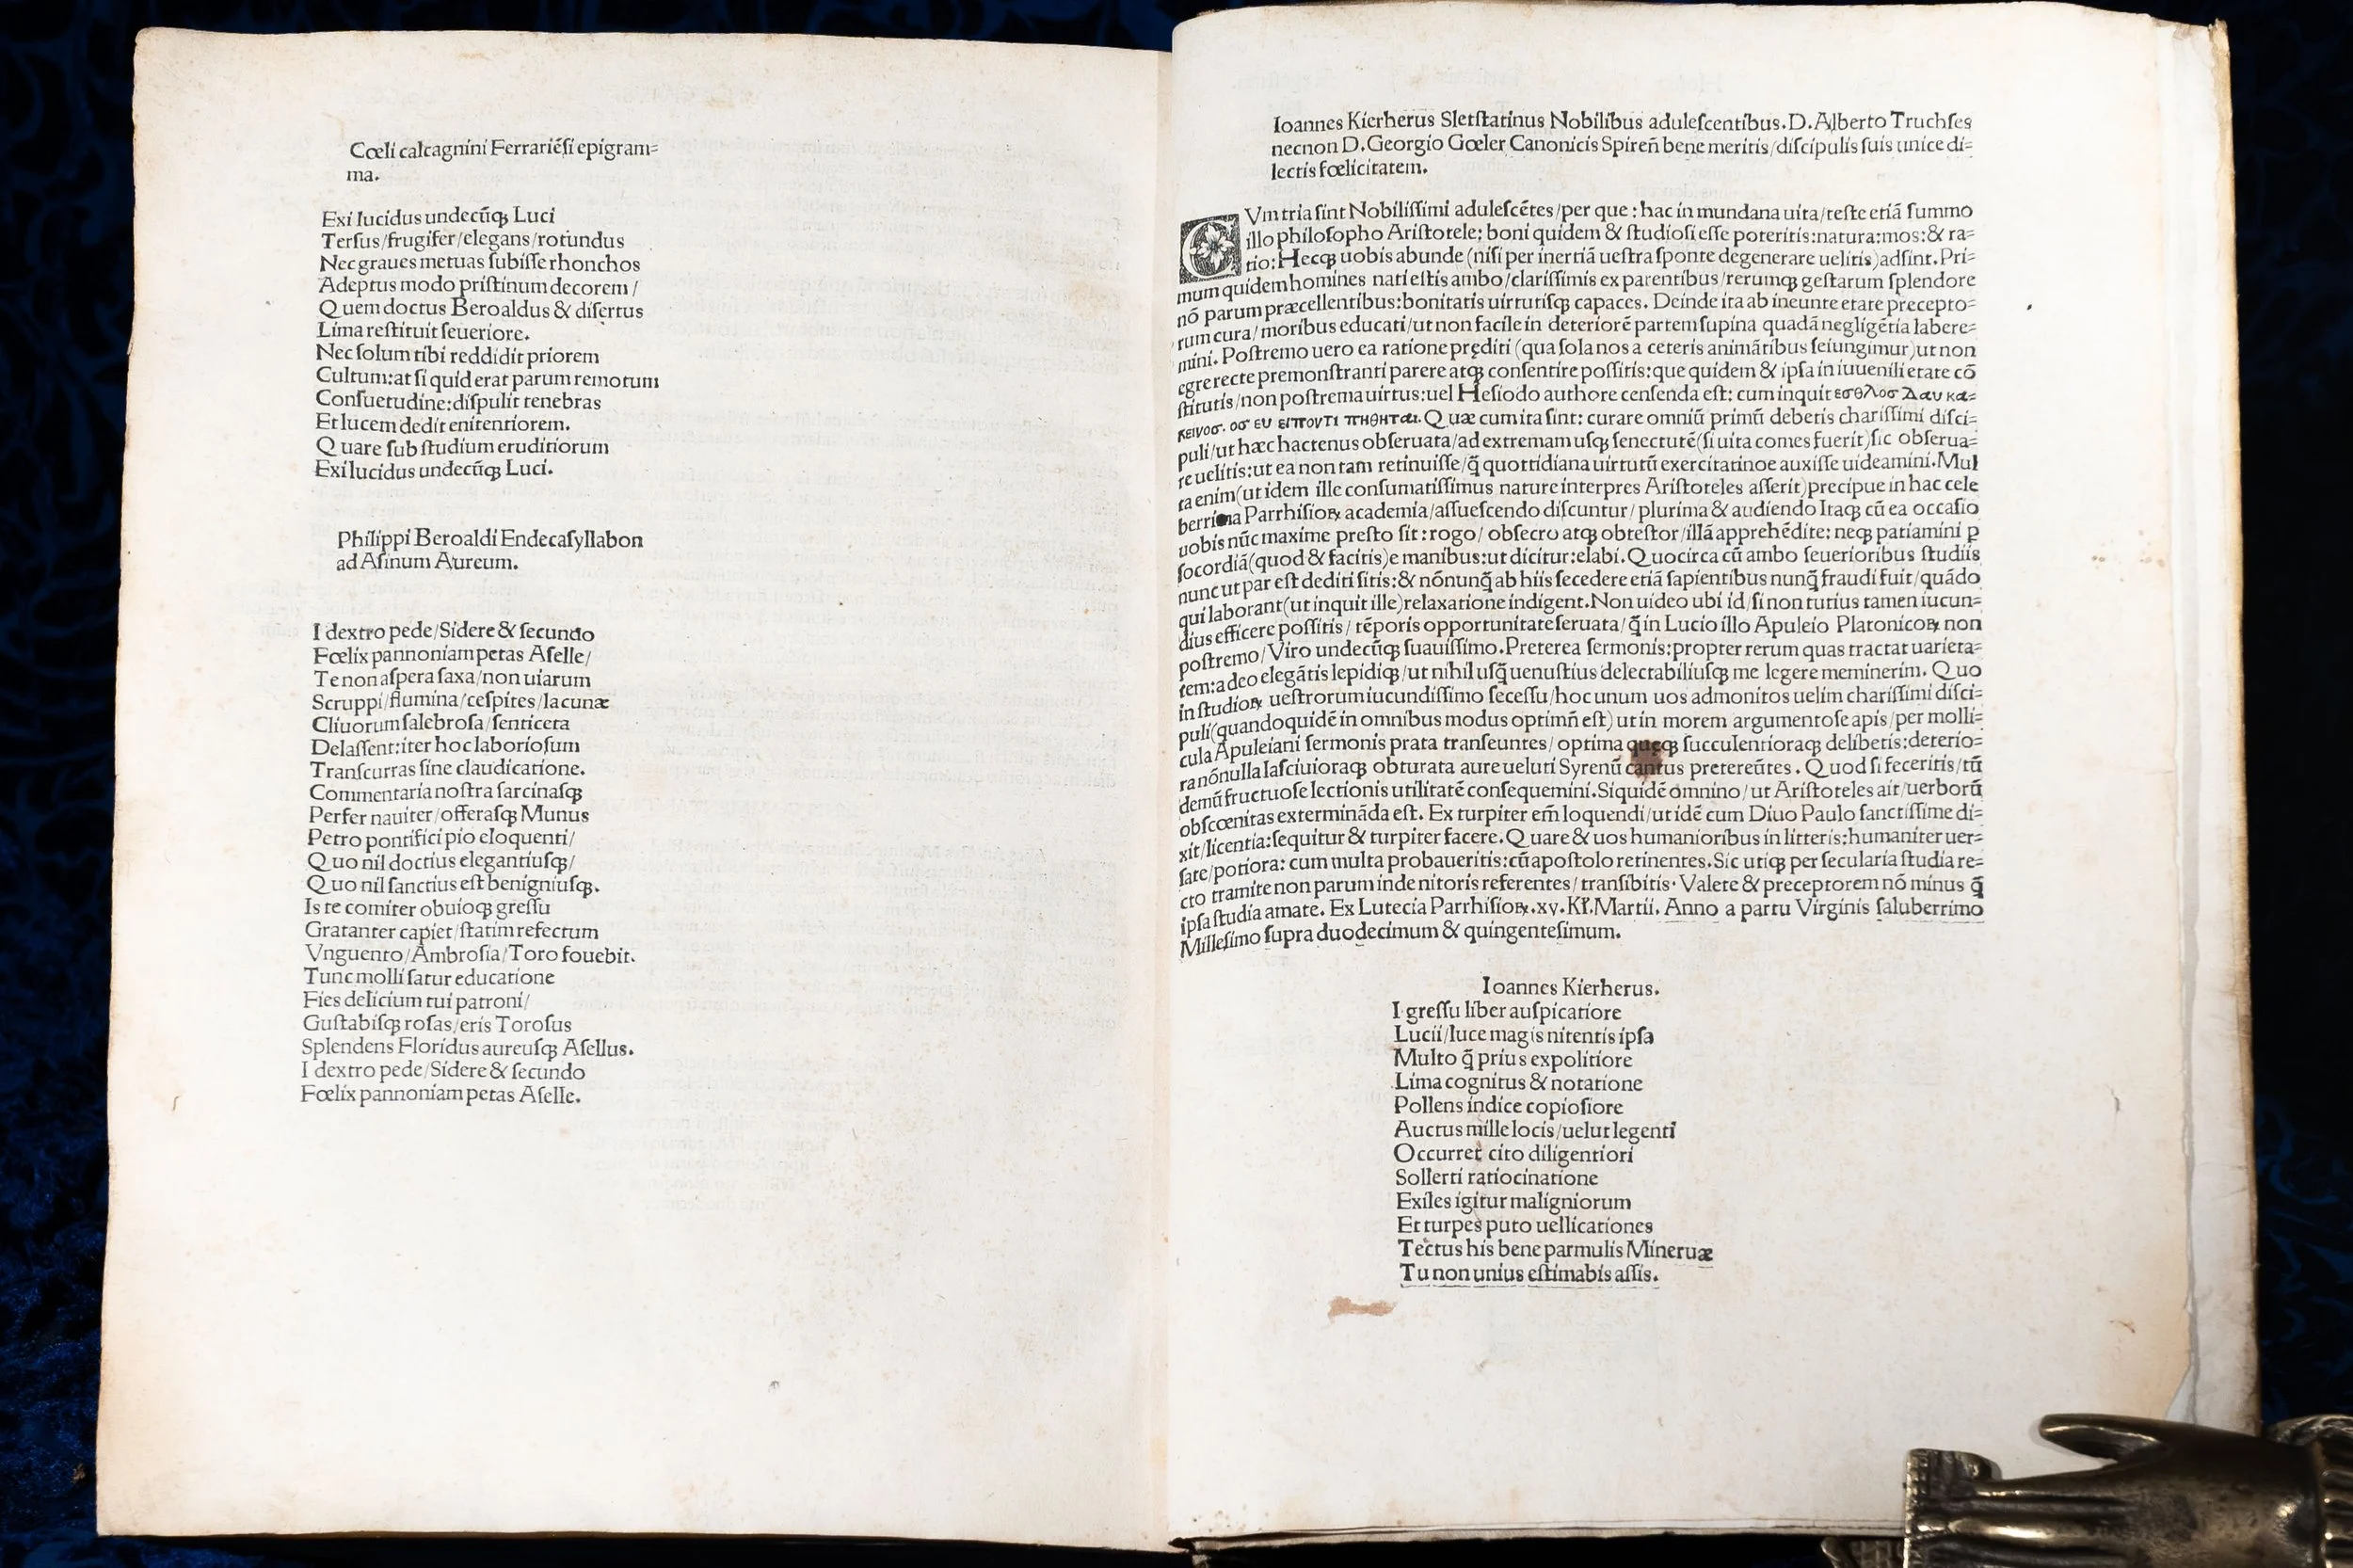 Cœli calcagnini Ferrariẽſi epigram=
ma.
Exi lucidus undecũqꝫ Luci
Terſus/frugifer/elegans/rotundus
Nec graues metuas ſubiſſe rhonchos
Adeptus modo priſtinum decorem /
Quem doctus Beroaldus & diſertus
Lima reſtituit ſeueriore.
Nec ſolum tibi reddidit priorem
Cultum:at ſi quid erat parum remotum
Conſuetudine:diſpulit tenebras
Et lucem dedit enitentiorem.
Quare ſub ſtudium eruditiorum
Exi lucidus undecũqꝫ Luci.
Philippi Beroaldi Endecaſyllabon
ad Aſinum Aureum.
I dextro pede/Sidere & ſecundo
Fœlix pannoniam petas Aſelle/
Te non aſpera ſaxa/non uiarum
Scruppi/flumina/ceſpites/lacunæ
Cliuorum ſalebroſa/ſenticeta
Delaſſent:iter hoc laborioſum
Tranſcurras ſine claudicatione.
Commentaria noſtra ſarcinaſqꝫ
Perfer nauiter/offeraſqꝫ Munus
Petro pontifici pio eloquenti/
Quo nil doctius elegantiuſqꝫ/
Quo nil ſanctius eſt benigniuſqꝫ.
Is te comiter obuioqꝫ greſſu
Gratanter capiet/ſtatim refectum
Vnguento/Ambroſia/Toro fouebit.
Tunc molli ſatur educatione
Fies delicium tui patroni/
Guſtabiſqꝫ roſas/eris Toroſus
Splendens Floridus aureuſqꝫ Aſellus.
I dextro pede/Sidere & ſecundo
Fœlix pannoniam petas Aſelle.
Ioannes Kierherus Sletſtatinus Nobilibus aduleſcentibus.D.Alberto Truchſes
necnon D.Georgio Gœler Canonicis Spireñ bene meritis/diſcipulis ſuis unice di=
lectis fœlicitatem.
CVm tria ſint Nobiliſſimi aduleſcẽtes/per que : hac in mundana uita/teſte etiã ſummo
illo philoſopho Ariſtotele; boni quidem & ſtudioſi eſſe poteritis:natura:mos:& ra=
tio: Hecqꝫ uobis abunde (niſi per inertiã ueſtra ſponte degenerare uelitis)adſint. Pri=
mum quidem homines nati eſtis ambo/clariſſimis ex parentibus/rerumqꝫ geſtarum ſplendore
nõ parum præcellentibus:bonitatis uirtutiſqꝫ capaces. Deinde ita ab ineunte etate precepto=
rum cura/ moribus educati/ut non facile in deteriorẽ partem ſupina quadã negligẽtia labere=
mini. Poſtremo uero ea ratione pręditi (qua ſola nos a ceteris animãtibus ſeiungimur)ut non
egre recte premonſtranti parere atqꝫ conſentire poſſitis:que quidem & ipſa in iuuenili etate cõ
ſtitutis/non poſtrema uirtus:uel Heſiodo authore cenſenda eſt: cum inquit εσθλοσ Δαυ κα=
κεινοσ. οσ ευ ειπουτι πηθηται. Quæ cum ita ſint: curare omniũ primũ debetis chariſſimi diſci=
puli/ut hæc hactenus obſeruata/ad extremam uſqꝫ ſenectutẽ(ſi uita comes fuerit)ſic obſerua=
re uelitis:ut ea non tam retinuiſſe/q̃ quottidiana uirtutũ exercitatinoe auxiſſe uideamini.Mul
ta enim(ut idem ille conſumatiſſimus nature interpres Ariſtoteles aſſerit)precipue in hac cele
berrima Parrhiſioꝝ academia/aſſueſcendo diſcuntur/ plurima & audiendo Itaqꝫ cũ ea occaſio
uobis nũc maxime preſto ſit : rogo/ obſecro atqꝫ obteſtor/illã apprehẽdite: neqꝫ patiamini ꝑ
ſocordiã(quod & facitis)e manibus:ut dicitur:elabi.Quocirca cũ ambo ſeuerioribus ſtudiis
nunc ut par eſt dediti ſitis:& nõnunq̃ ab hiis ſecedere etiã ſapientibus nunq̃ fraudi fuit/quãdo
qui laborant(ut inquit ille)relaxatione indigent.Non uideo ubi id/ſi non tutius tamen iucun=
dius efficere poſſitis/ tẽporis opportunitate ſeruata/q̃ in Lucio illo Apuleio Platonicoꝝ non
poſtremo/Viro undecũqꝫ ſuauiſſimo.Preterea ſermonis:propter rerum quas tractat uarieta=
tem:adeo elegãtis lepidiqꝫ/ut nihil uſq̃ uenuſtius delectabiliuſqꝫ me legere meminerim. Quo
in ſtudioꝝ ueſtrorum iucundiſſimo ſeceſſu/hoc unum uos admonitos uelim chariſſimi diſci=
puli(quandoquidẽ in omnibus modus optimñ eſt) ut in morem argumentoſe apis/per molli=
cula Apuleiani ſermonis prata tranſeuntes/ optima quęqꝫ ſucculentioraqꝫ delibetis:deterio=
ra nõnulla laſciuioraqꝫ obturata aure ueluti Syrenũ cantus pretereũtes. Quod ſi feceritis/tũ
demũ fructuoſe lectionis utilitatẽ conſequemini.Siquidẽ omnino/ut Ariſtoteles ait/uerborũ
obſcœnitas exterminãda eſt. Ex turpiter em̃ loquendi/ut idẽ cum Diuo Paulo ſanctiſſime di=
xit/licentia:ſequitur & turpiter facere.Quare & uos humanioribus in litteris:humaniter uer=
ſate/potiora: cum multa probaueritis:cũ apoſtolo retinentes.Sic utiqꝫ per ſecularia ſtudia re=
cto tramite non parum inde nitoris referentes/tranſibitis. Valete & preceptorem nõ minus q̃
ipſa ſtudia amate. Ex Lutecia Parrhiſioꝝ.xv.Kł.Martii. Anno a partu Virginis ſaluberrimo
Milleſimo ſupra duodecimum & quingenteſimum.
Ioannes Kierherus.
I greſſu liber auſpicatiore
Lucii/luce magis nitentis ipſa
Multo q̃ prius expolitiore
Lima cognitus & notatione
Pollens indice copioſiore
Auctus mille locis/uelut legenti
Occurret cito diligentiori
Sollerti ratiocinatione
Exiles igitur maligniorum
Et turpes puto uellicationes
Tectus his bene parmulis Mineruæ
Tu non unius eſtimabis aſſis.